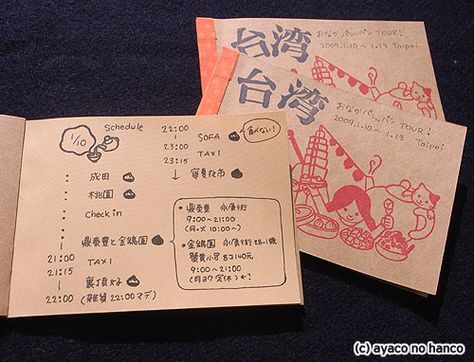 台湾
おなかパンパン TOUR!
2009.1.10～1.13 Taipei
台湾
おなかパンパン TOUR!
2009.1.10～1.13 Taipei
1/10
Schedule
成田
桃園
Check in
鼎泰豊と金鶏園
21:00 TAXI
21:15
裏頂好
22:00 (雑貨 22:00マデ)
22:00
SOFA
食べない!
23:00
TAXI
23:15
夜市
・鼎泰豊 永康街
9:00～21:00
(月.火 10:00～)
・金鶏園 永康街28-1號
8コ140元
9:00～21:00
定休
(c) ayaco no hanco